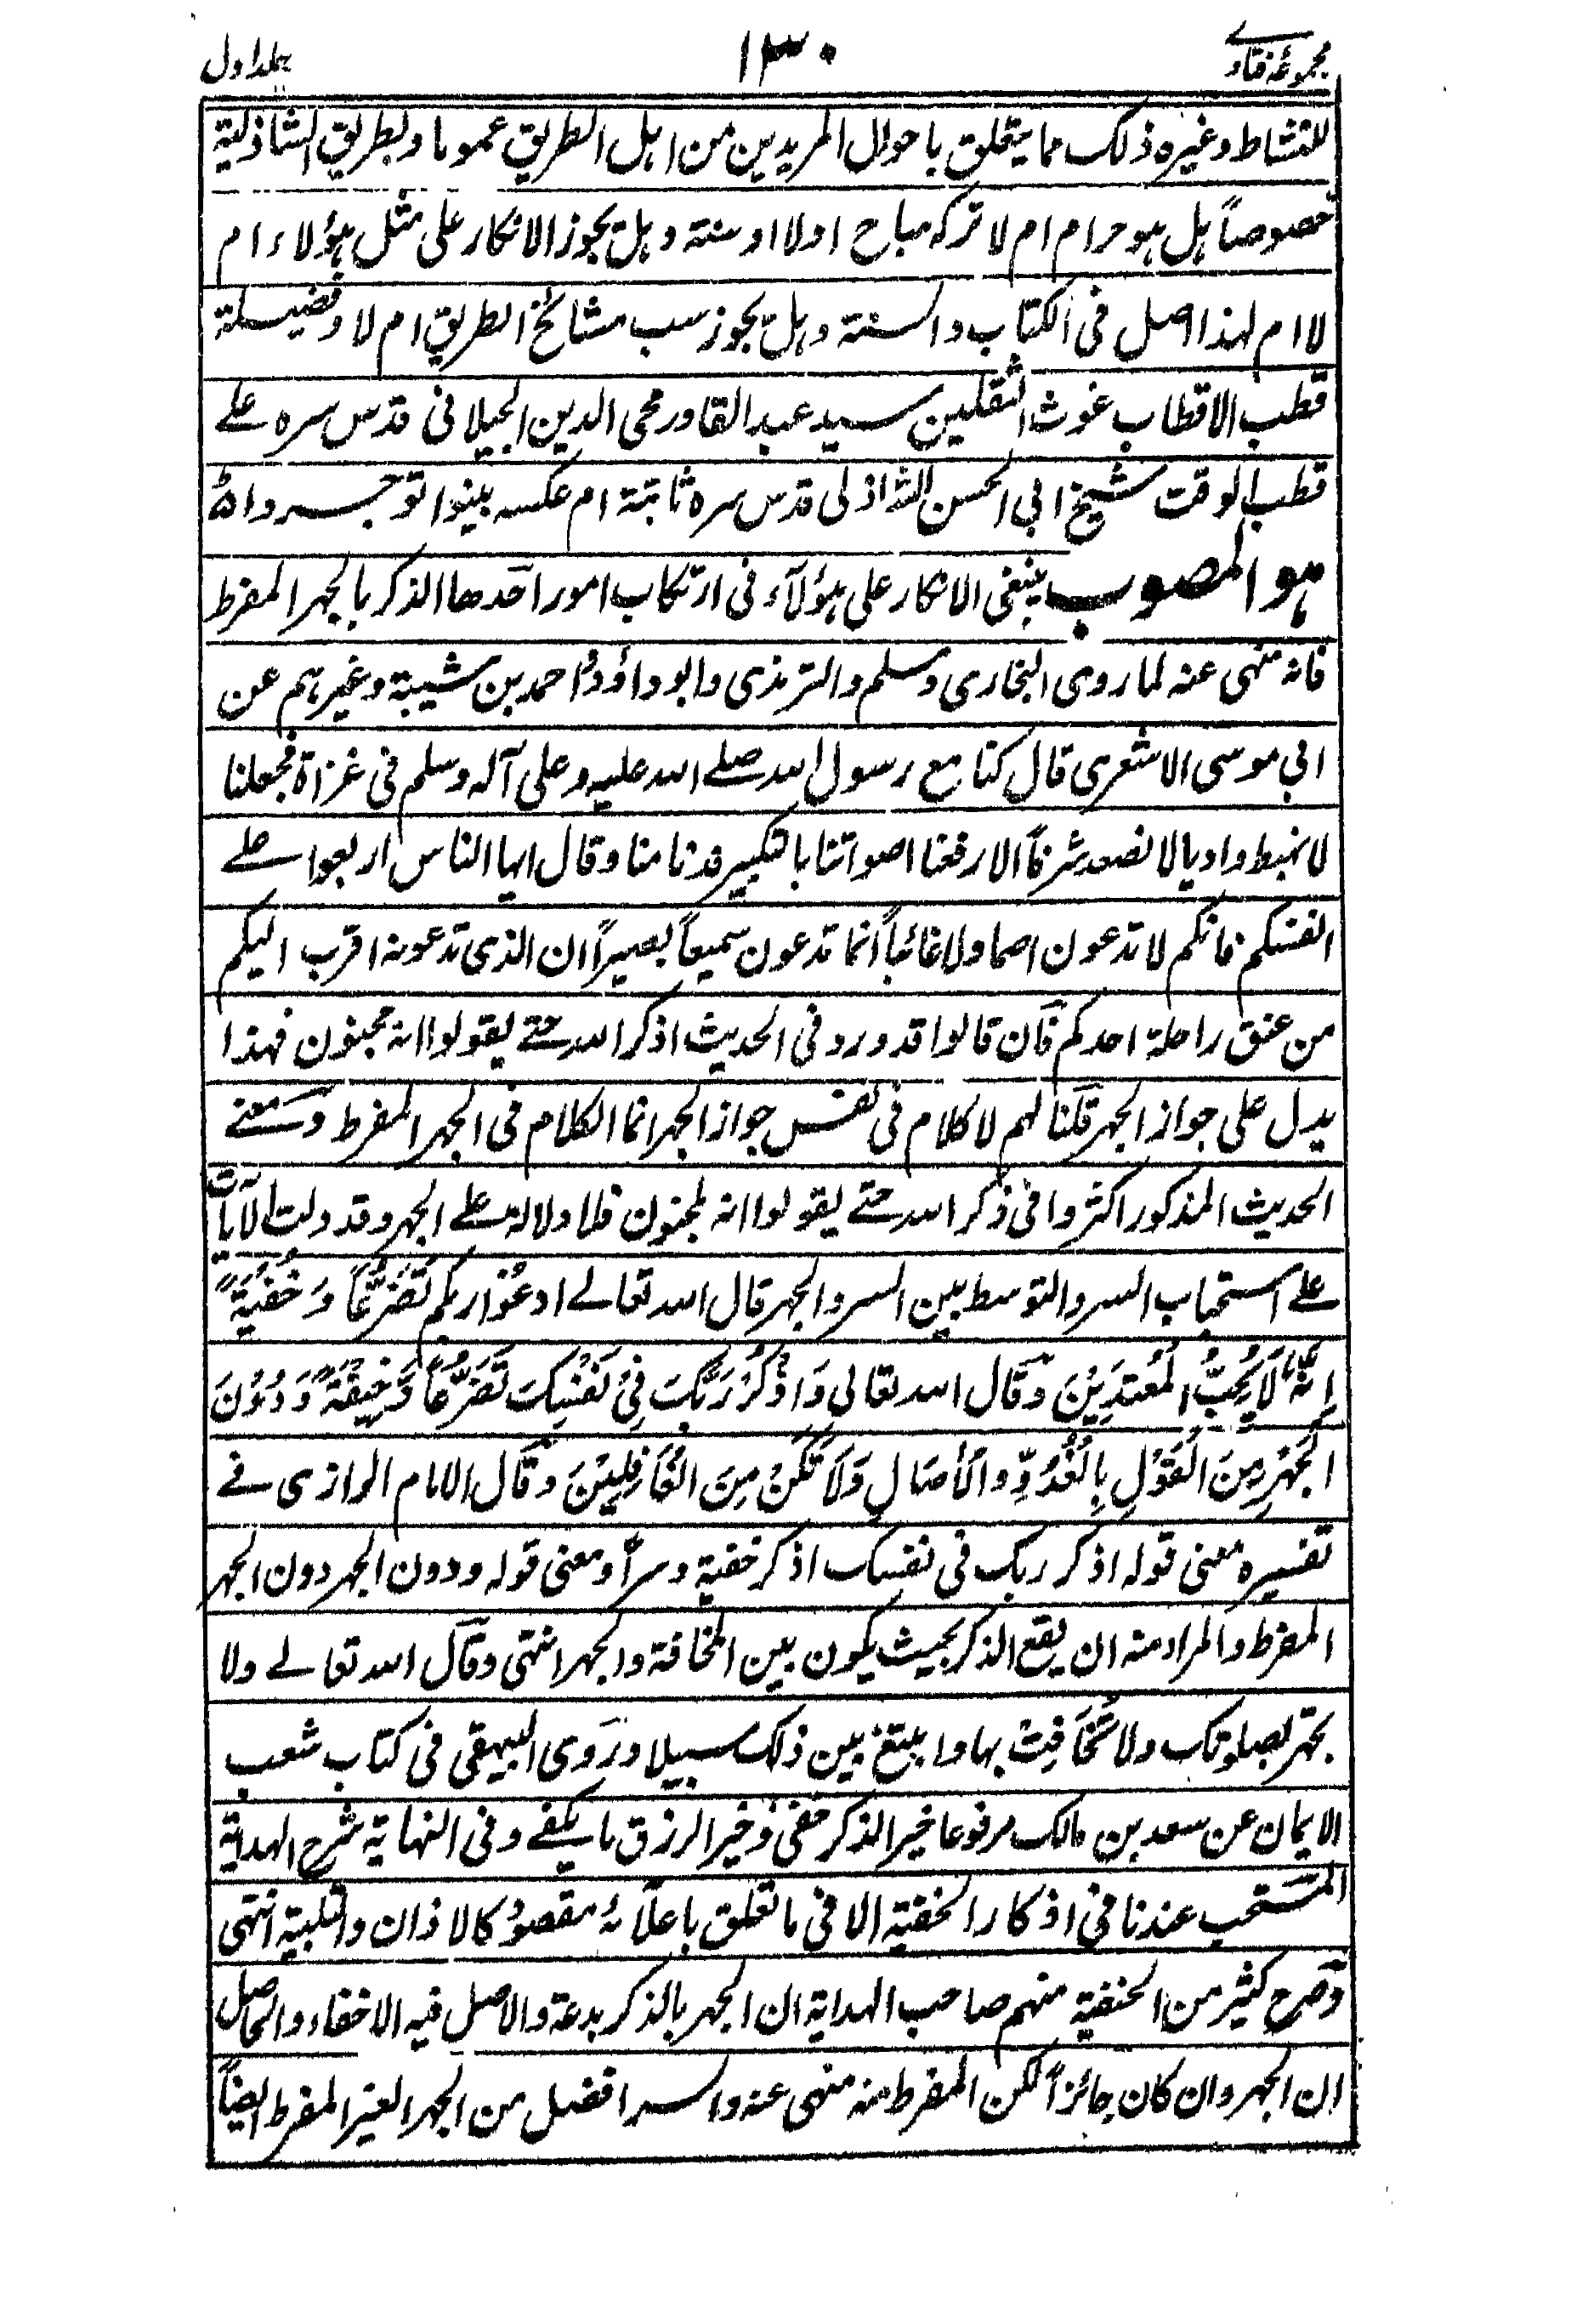 مجموعۂ فتاوے
۱۳۰
جلد اول
للنشاط وغیره ذلک مما یتعلق باحوال المریدین من اہل الطریق عموما وبطریق الشاذلیة
خصوصاً ہل ہو حرام ام لا ترکہ مباح اولا او سنتہ وہل یجوز الانکار علی مثل ہؤلاء ام
لا ام لہذا اصل فی الکتاب والسنتہ وہل یجوز سب مشائخ الطریق ام لا وفضیلة
قطب الاقطاب غوث الثقلین سید عبد القادر محی الدین الجیلانی قدس سرہ علے
قطب الوقت شیخ ابی الحسن الشاذلی قدس سرہ ثابتة ام عکسہ بینوا توجروا
ہو المصوب ینبغی الانکار علی ہؤلآء فی ارتکاب امور احدھا الذکر بالجہر المفرط
فانہ منہی عنہ لما روی البخاری ومسلم والترمذی وابو داؤد واحمد بن شیبة وغیرہم عن
ابی موسی الاشعری قال کنا مع رسول اللہ صلے اللہ علیہ وعلی آلہ وسلم فی غزاة فجعلنا
لا نہبط وادیا لا نصعد شرفاً الا رفعنا اصواتنا بالتکبیر فدنا منا وقال ایہا الناس اربعوا علے
انفسکم فانکم لا تدعون اصما ولا غائباً انما تدعون سمیعاً بصیراً ان الذی تدعونہ اقرب الیکم
من عنق راحلة احدکم فان قالوا قد ورد فی الحدیث اذکر اللہ حتے یقولوا انہ مجنون فہذا
یدل علی جواز الجہر قلنا لہم لا کلام فی نفس جواز الجہر انما الکلام فی الجہر المفرط ومعنے
الحدیث المذکور اکثروا فی ذکر اللہ حتے یقولوا انہ لمجنون فلا دلالہ علے الجہر وقد دلت الآیات
علے استحباب السر والتوسط بین السر والجہر قال اللہ تعالے ادْعُوْا ربکم تَضَرُّعًا وَخُفْیَةً
اِنَّہٗ لَا یُحِبُّ الْمُعْتَدِیْنَ وقال اللہ تعالی وَاذْکُرْ رَبَّکَ فِیْ نَفْسِکَ تَضَرُّعًا وَّخِیْفَةً وَدُوْنَ
الْجَہْرِ مِنَ الْقَوْلِ بِالْغُدُوِّ وَالْآصَالِ وَلَا تَکُنْ مِنَ الْغَافِلِیْنَ وقال الامام الرازی فے
تفسیرہ معنی قولہ اذکر ربک فی نفسک اذکر خفیة وسراً ومعنی قولہ ودون الجہر دون الجہر
المفرط والمراد منہ ان یقع الذکر بحیث یکون بین المخافتة والجہر انتہی وقال اللہ تعالے ولا
تجہر بصلوتک ولا تُخَافِتْ بہا وابتغ بین ذلک سبیلا وروی البیہقی فی کتاب شعب
الایمان عن سعد بن مالک مرفوعا خیر الذکر خفی وخیر الرزق ما یکفے وفی النہایة شرح الہدایة
المستحب عندنا فی اذکار الخفیة الا فی ما تعلق باعلانہ مقصود کالاذان والتلبیة انتہی
وصرح کثیر من الحنفیة منہم صاحب الہدایة ان الجہر بالذکر بدعة والاصل فیہ الاخفاء والحاصل
ان الجہر وان کان جائزاً لکن المفرط منہ منہی عنہ والسر افضل من الجہر الغیر المفرط ایضاً